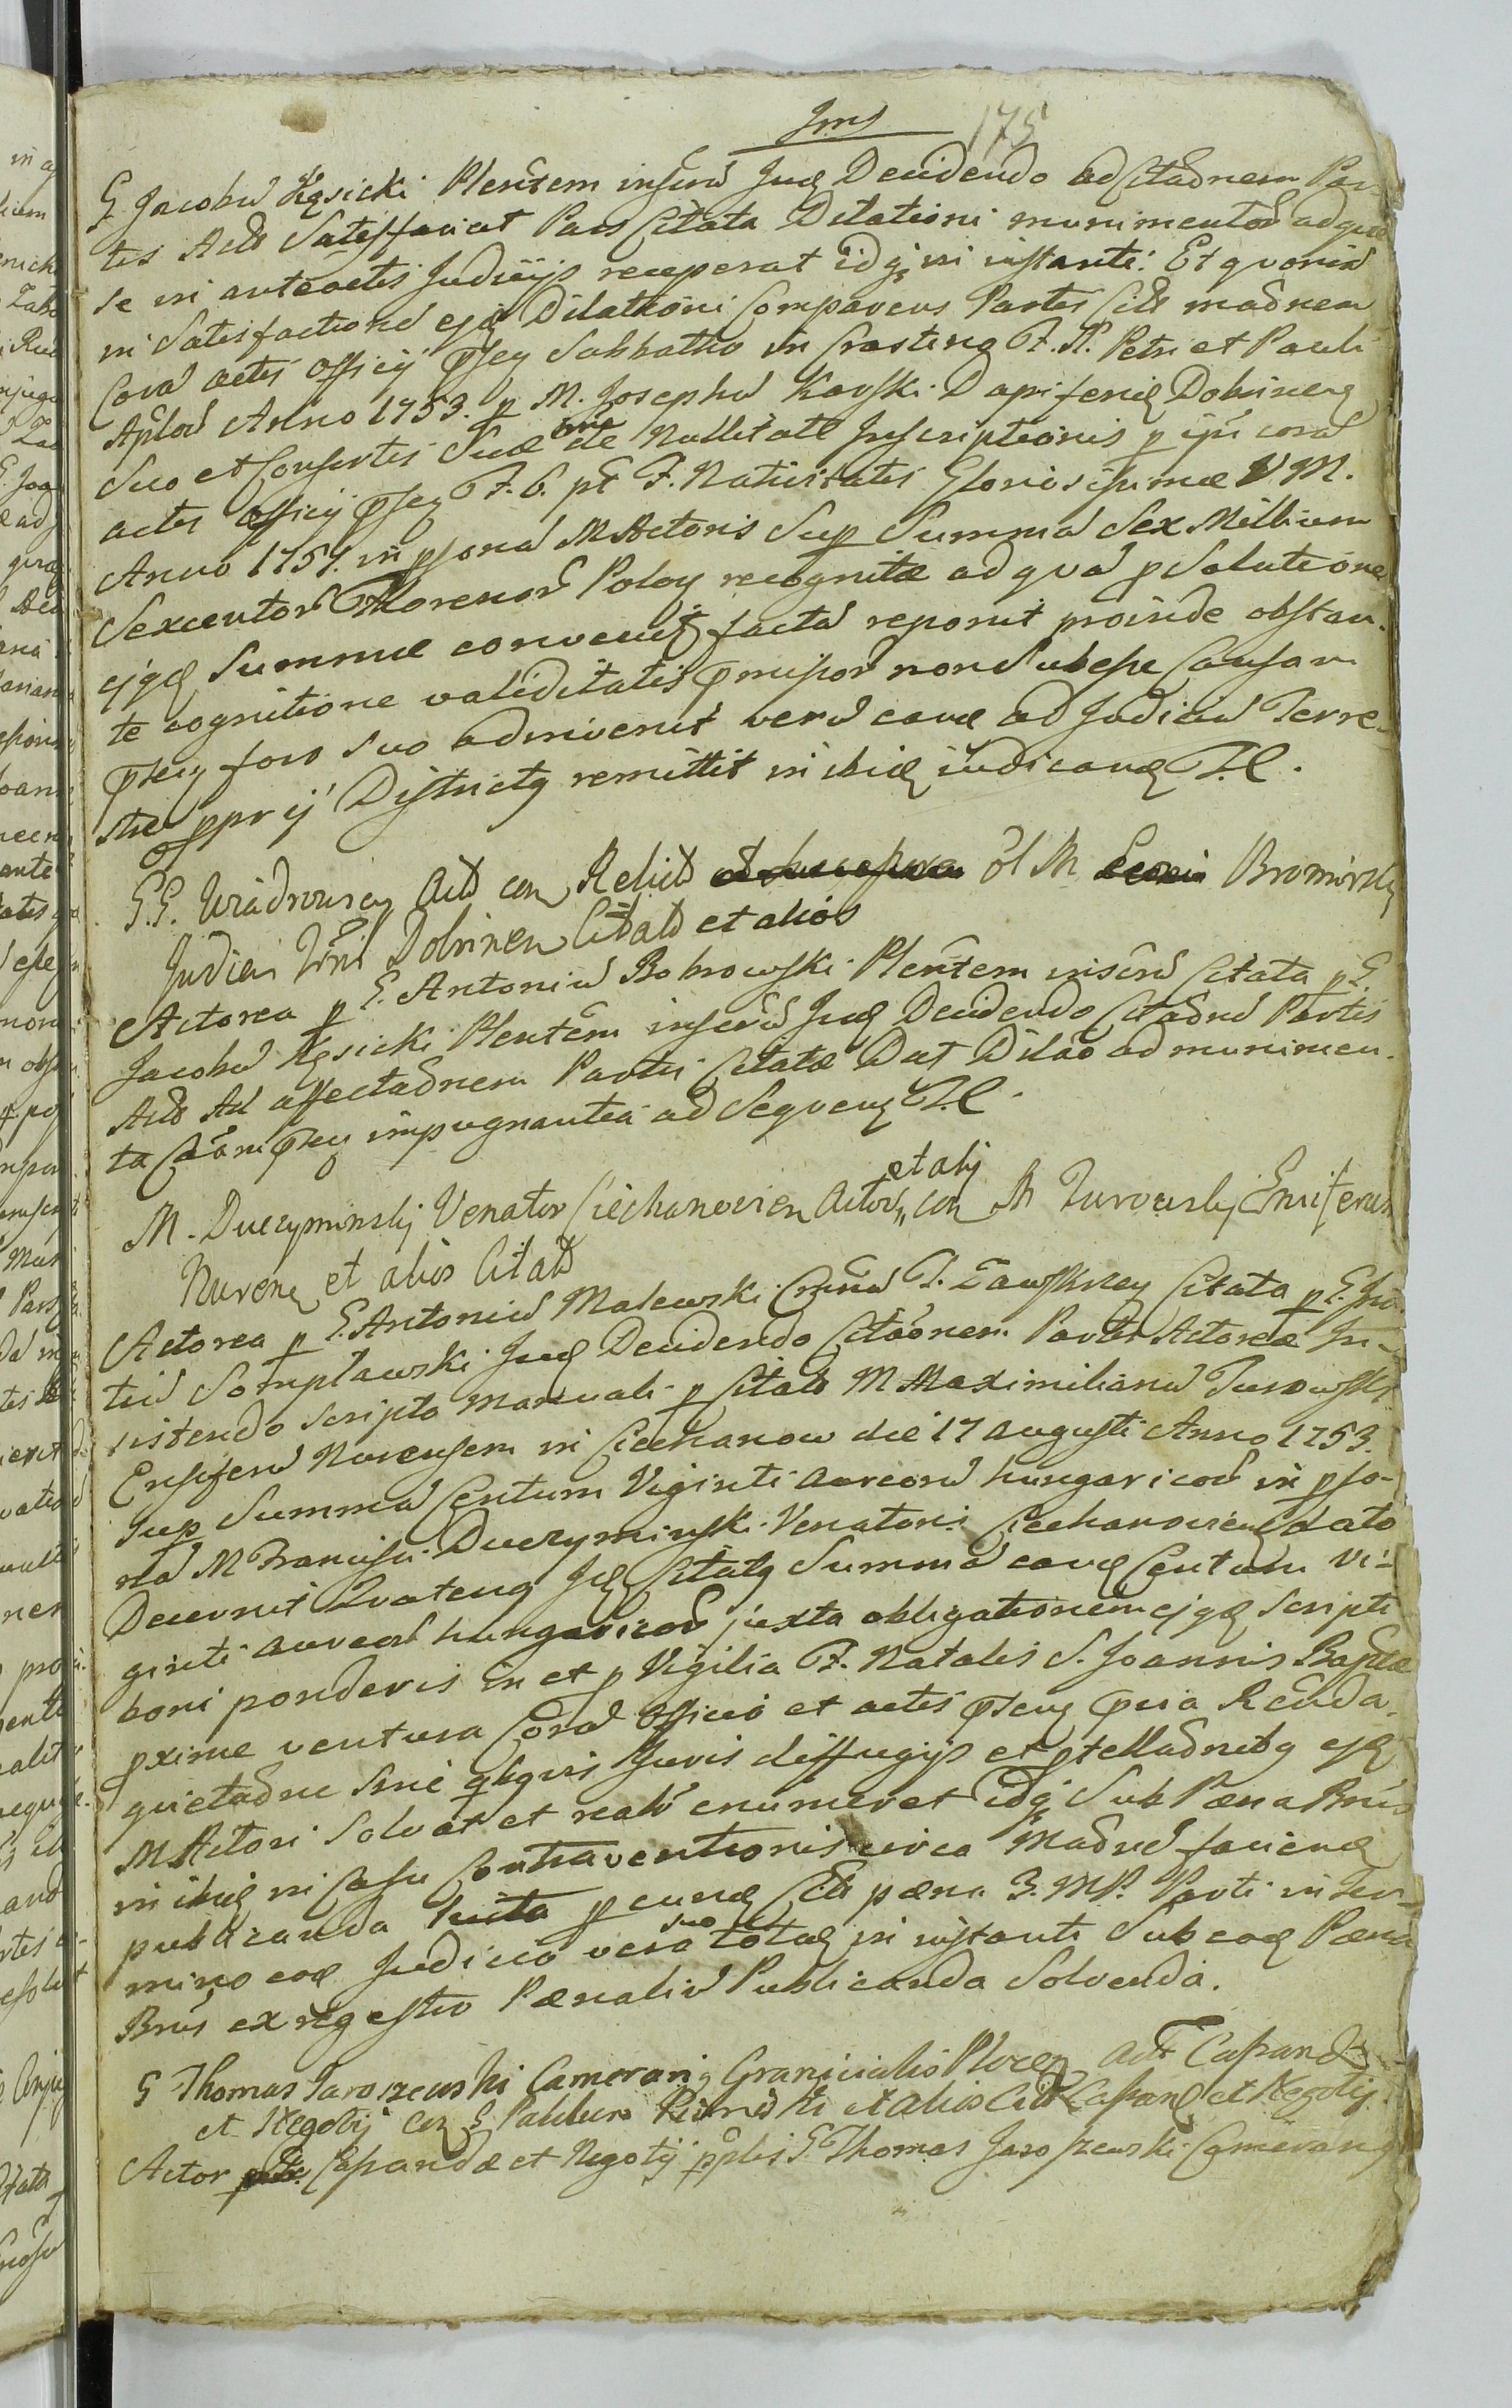 175
G Jacobu Kęsicki Plentem inseru Jud Decidendo ad Citaonem Par-
tis Acto Satisfaciat Pars Citata Dilationi munimentor ad quae
se in anteactis Judicijs receperat idq in instanti. Et quonia
in Satisfactione ejd Dilationi Comparens Partis Cito maonem
Cora actis officij pseq Sabbatho in Crastino F. S. Petri et Pauli
Aplor Anno 1753. p M. Josephu Karski Dapiferid Dobrineq
Suo et Consortis Suae nie de Nullitate Inscriptionis p ipsi cora
actis officij pseq F. 6. pt F. Nativitatis Gloriosissimae V M.
Anno 1751. in psona M Actoris Sup Summa Sex Millium
Sexcentor Florenor Polon recognitae ad qua p Solutione
ejqd Summae convenit facta reponit proinde obstan-
te cognitione validitatis pmissor non Subesse Causam
pseq foro Suo adinvenit veru eand ad Judiciu Terre-
stre pprij Districtq remittit inibid iudicand P.C.
G.G. Wiadrowscy Act con Relict ol M Bromirsky
Judicis Tris Dobrinen Citato et alios
Actorea p G. Antoniu Bobrowski Plentem inseru Citata p G.
Jacobu Kęsicki Plentem inseru Jud Decidendo Citaone Partis
Acto Ad affectaonem Partis Citatae Dat Dilao ad munimen-
ta Caam pseq impugnantia ad Sequenq P.C.
et alij
M. Duczyminskij Venator Ciechanovien Actor con M Turowsky Ensiferum
Nurenq et alios Citato
Actorea p G. Antoniu Malewski Citata p G. Ju-
Jud Decidendo Citaonem Partis Actoreae In-
sistendo scripto manuali p Citato M Maximilianu Turowski
Ensiferu Nurensem in Ciechanow die 17 Augusti Anno 1753.
Sup Summa Centum Viginti aureoru hungaricor in pso-
na M Francisci Duczyminski Venatoris Ciechanovienq dato
Decernit Quatenq Jd Citatq Summa eand Centum Vi-
ginti aureor hungaricor juxta obligationem ejqd Scripti
boni ponderis in et p Vigilia F. Natalis S. Joannis Baptae
pxime ventura Cora officio et actis pseq
quietaone Sine qbqvis Juris diffugijs et ptellaonibq ejd
M Actori Solvat et realr enumeret idq Sub Paena Bnis
inibid in Casu Contraventionis circa Maone faciend
publicanda p eund Cito paena 3. MP. Parti in Ter-
mino eod Judicio vero suo totaq in instanti Sub ead Paena
Bnis ex regestro Paenaliu Publicanda Solvenda.
G Thomas Jaroszewski Camerariq Granicialis Plocen Act Capand
et Negotij con G et alios Cito Capand et Negotij
Actor Capandae et Negotij pplis G Thomas Jaroszewski Camerariq